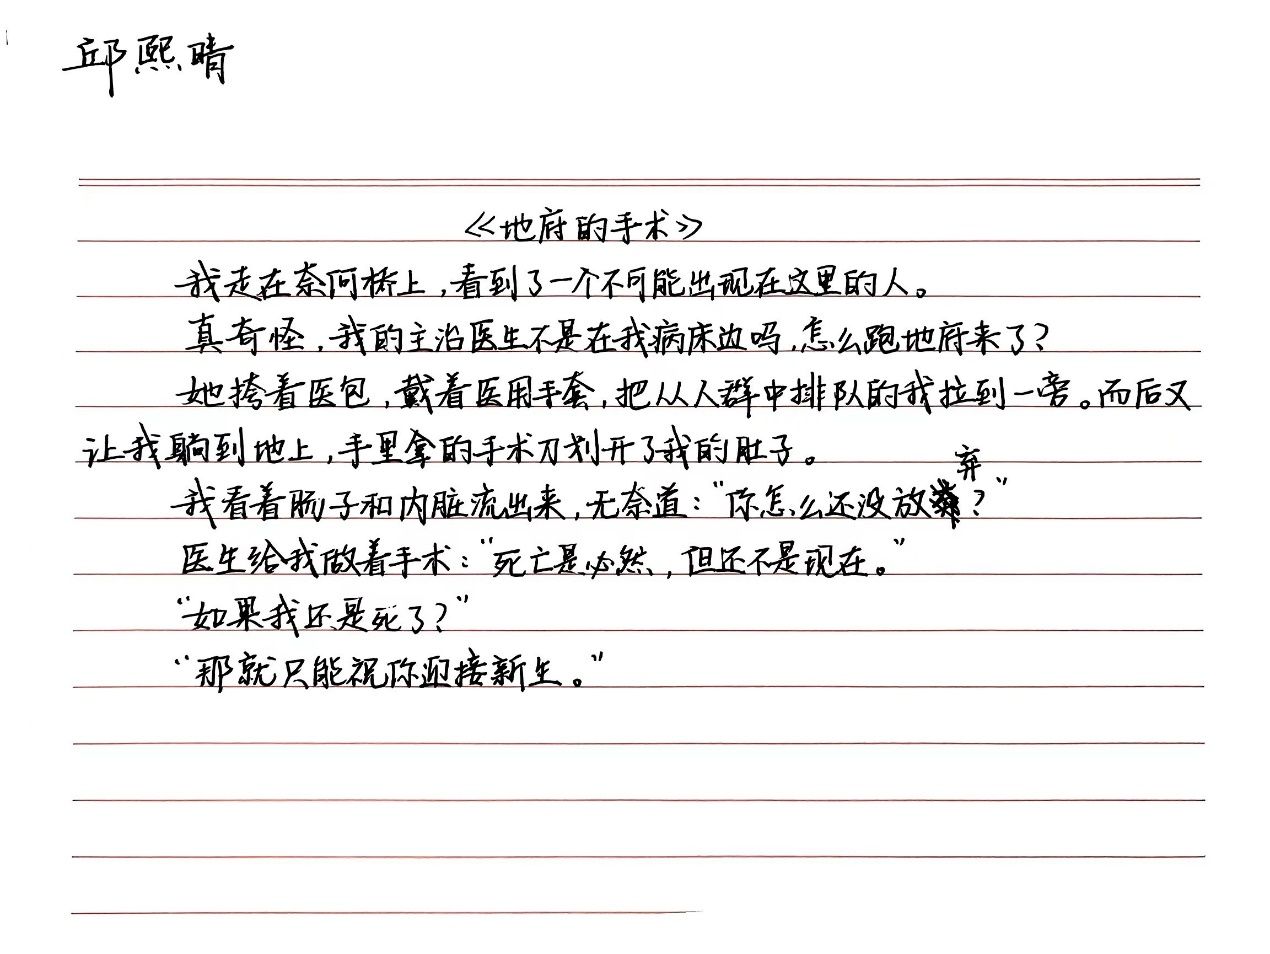 邱熙晴
《地府的手术》
我走在奈何桥上,看到了一个不可能出现在这里的人。
真奇怪,我的主治医生不是在我病床边吗,怎么跑地府来了?
她挎着医包,戴着医用手套,把从人群中排队的我拉到一旁。而后又
让我躺到地上,手里拿的手术刀划开了我的肚子。
我看着肠子和内脏流出来,无奈道:“你怎么还没放弃?”
医生给我做着手术:“死亡是必然,但还不是现在。”
“如果我还是死了?”
“那就只能祝你迎接新生。”